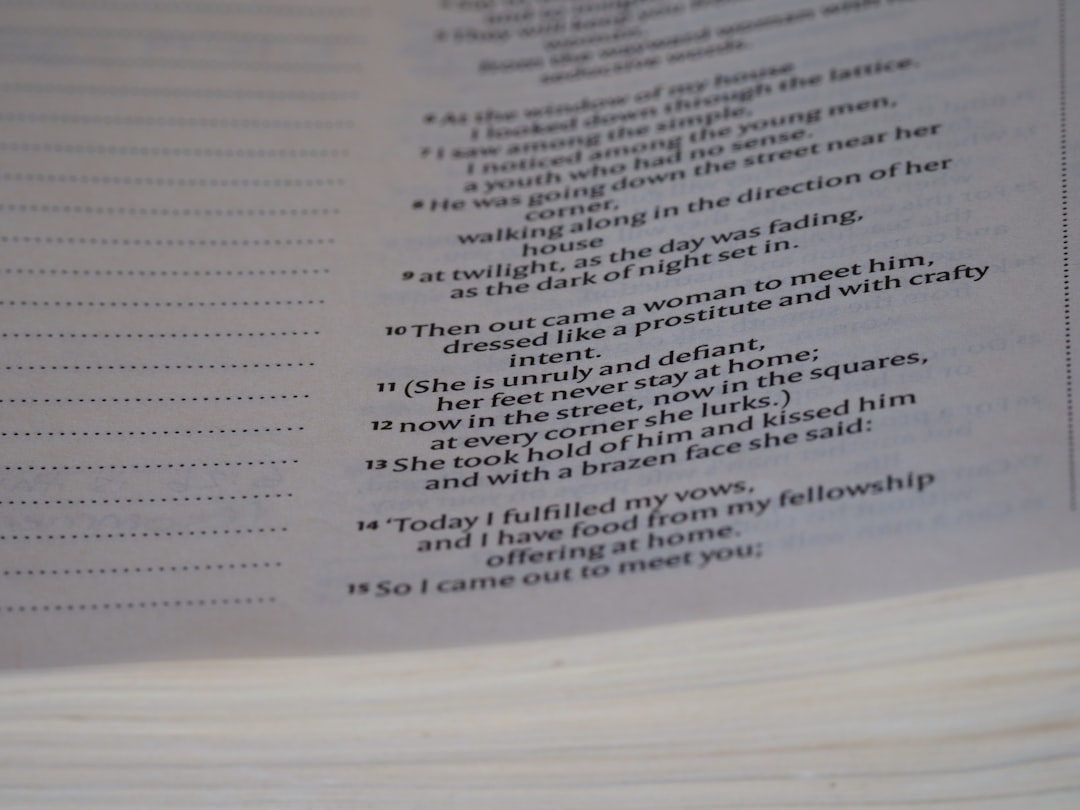 5 They will keep you from
woman,
from the wayward woman with
seductive words.
6 At the window of my house
I looked down through the lattice.
7 I saw among the simple,
I noticed among the young men,
a youth who had no sense.
8 He was going down the street near her
corner,
walking along in the direction of her
house
9 at twilight, as the day was fading,
as the dark of night set in.
10 Then out came a woman to meet him,
dressed like a prostitute and with crafty
intent.
11 (She is unruly and defiant,
her feet never stay at home;
12 now in the street, now in the squares,
at every corner she lurks.)
13 She took hold of him and kissed him
and with a brazen face she said:
14 ‘Today I fulfilled my vows,
and I have food from my fellowship
offering at home.
15 So I came out to meet you;